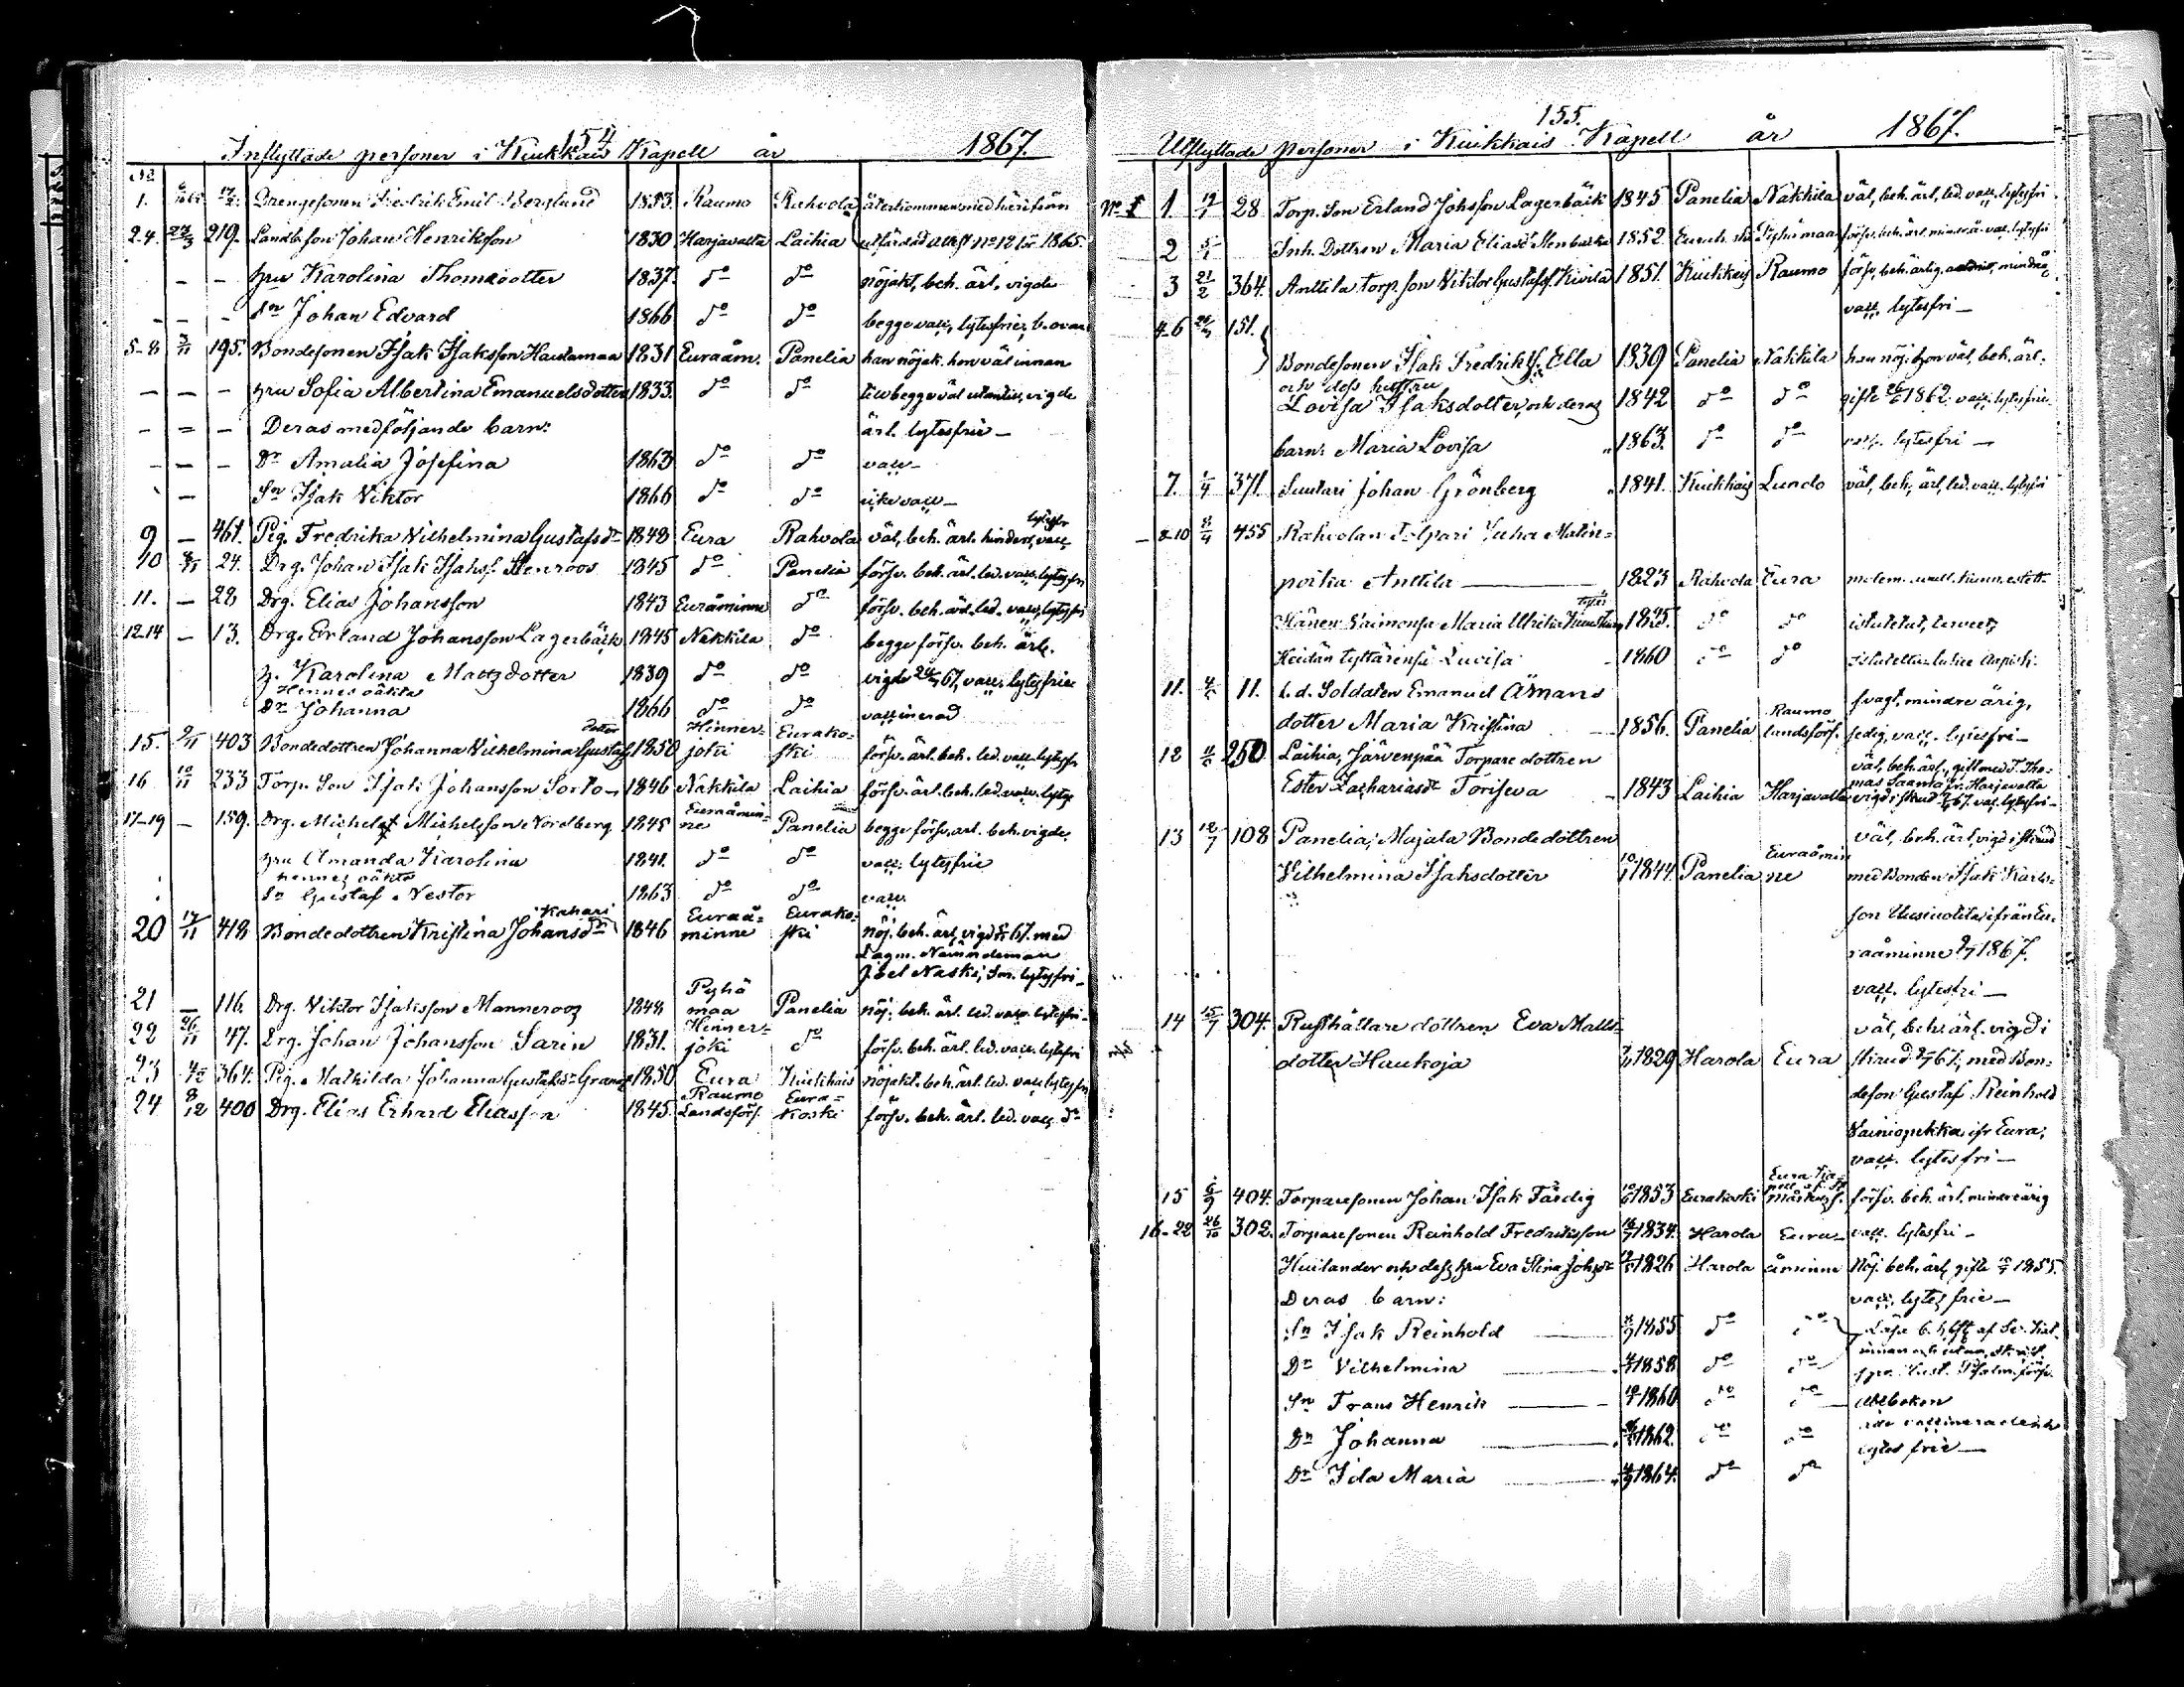 154
Inflyttade personer i Kiukkais Kapell år 1867.
No
1. Drengsonen Fredrik Emil Berglund 1853. Raumo Rahvola återkommen med härifrån
2.4. 219. Landb. son Johan Henriksson 1830 Harjavalta Laihia utfärdad attest No 12 för 1865.
- - hru Karolina Thomædotter 1837. do do nöjakt, beh. ärl. vigde
- - - Sn Johan Edvard 1866 do do begge vacc, lytesfrie,
5-8 3/11 195. Bondesonen Isak Isaksson Hautamaa 1831 Euraåm. Panelia han nöjak. hon väl innan
- - - hru Sofia Albertina Emanuelsdotter 1833. do do begge väl utantill, vigde
- = - Deras medföljande barn: ärl. lytesfrie -
- - - Dr Amalia Josefina 1863 do do vacc -
- Sn Isak Viktor 1866 do do icke vacc -
9 - 461. Pig. Fredrika Vilhelmina Gustafsdr 1848 Eura Rahvola väl, beh. ärl. hinderl, vacc lytesfr
10 8/11 24. Drg. Johan Isak Isakss. Stenroos 1845 do Panelia försv. beh. ärl. led. vacc. lytesfri
11. - 28 Drg. Elias Johansson 1843 Euraåminne do försv. beh. ärl. led. vacc, lytesfri
12-14 - 13. Drg. Erland Johansson Lagerbäck 1845 Nakkila do begge försv. beh. ärl.
h. Karolina Matzdotter 1839 do do vigde 24/ 67, vacc. lytesfrie
Hennes oäkta
Dr Johanna 1866 do do vaccinerad
15. 9/11 403 Bondedottren Johanna Vilhelmina Gustafs dotter 1850 Hinnerjoki Eurakoski försv. ärl. beh. led. vacc. lytesfr
16 10/11 233 Torp. Son Isak Johansson Sorto 1846 Nakkila Laihia försv. ärl. beh. led. vacc. lytes
17-19 - 159. Drg. Michel Michelsson Nordberg 1845 Euraåminne Panelia begge försv. ärl. beh. vigde.
hru Amanda Karolina 1841. do do vacc. lytesfrie
hennes oäkta
Sn Gustaf Nestor 1863 do do vacc.
20 17/11 418 Bondedottren Kristina Johansdr Kahari 1846 Euraåminne Eurakoski nöj. beh. ärl, vigd 67. med
Lagm. Nämndeman
Joel Naski, Sn. lytesfri -
21 - 116. Drg. Viktor Isaksson Manneroos 1848 Pyhämaa Panelia nöj. beh. ärl. led. vacc. lytesfri -
22 26/11 47. Drg. Johan Johansson Sarin 1831. Hinnerjoki do försv. beh. ärl. led. vacc. lytesfri
23 4/12 364. Pig. Mathilda Johanna Gustafsdr 1850 Eura Kiukkais nöjakt. beh. ärl. led. vacc. lytesfri
24 8/12 400 Drg. Elias Erhard Eliasson 1845. Raumo Landsförs. Eurakoski försv. beh. ärl. led. vacc do
155.
Utflyttade personer i Kiukkais Kapell år 1867.
No 1 28 Torp. Son Erland Johsson Lagerbäck 1845 Panelia Nakkila väl, beh. ärl, led. vacc. lytesfri
2 Inh. Dottren Maria Eliasdr 1852. Pyhämaa försv. beh. ärl. minderå. vacc. lytesfri
3 21/2 364. Anttila torp. son Viktor Gustafss. Kivilä 1851. Kiukkais Raumo försv, beh. ärlig, mindrå
vacc. lytesfri -
4-6 151.
Bondesonen Isak Fredrikss. Ella 1839 Panelia Nakkila han nöj. hon väl, beh. ärl.
och dess hustru
Lovisa Isaksdotter, och deras 1842 do do gifte 1862. vacc. lytesfrie
barn: Maria Lovisa 1863. do do vacc. lytesfri -
7. 371. Suutari Johan Grönberg 1841. Kiukkais Lundo väl, beh, ärl, led. vacc. lytesfri
8-10 455 Rahvolan Tolpari Juha Matin=
poika Anttila 1823 Rahvola Eura
Hänen Vaimonsa Maria Ulrika 1825. do do
Heidän tyttärensä Lovisa 1860 do do
11. 11. Soldaten Emanuel Åmans svagt, mindre årig,
dotter Maria Kristina 1856. Panelia Raumo landsförs. vacc. lytesfri -
12 250 Laihia, Järvenpää Torpare dottren väl, beh. ärl, gift med T. Thomas
Ester Zachariasdr Toriseva 1843 Laihia Harjavalta
13 12/7 108 Panelia, Majala Bonde dottren väl, beh. ärl, vigd
Vilhelmina Isaksdotter 1844. Panelia Euraåminne med Bonden Isak Karls-
son ifrån Eu-
raåminne 1867.
vacc. lytesfri -
14 15/7 304. Rusthållare dottren Eva Matts= väl, beh. ärl. vigd i
dotter Haukoja 1829 Harola Eura 67, med Bon-
deson Gustaf Reinhold
Vainiopekka ifr Eura;
vacc. lytesfri -
15 6/9 404. Torparesonen Johan Isak Färdig 1853 Eurakoski försv. beh. ärl. mindreårig
16-22 26/10 302. Torparesonen Reinhold Fredriksson 1834. Harola Eura- vacc. lytesfri -
Huilander och dess hru Eva Stina Johsdr 1826 Harola åminne Nöj. beh. ärl. gifte 1855.
Deras barn: vacc. lytesfrie -
Sn Isak Reinhold 1855 do do
Dr Vilhelmina 1858 do do
Sn Frans Henrik 1860 do do
Dr Johanna 1862. do do
Dr Ida Maria 1864. do do lytesfrie -